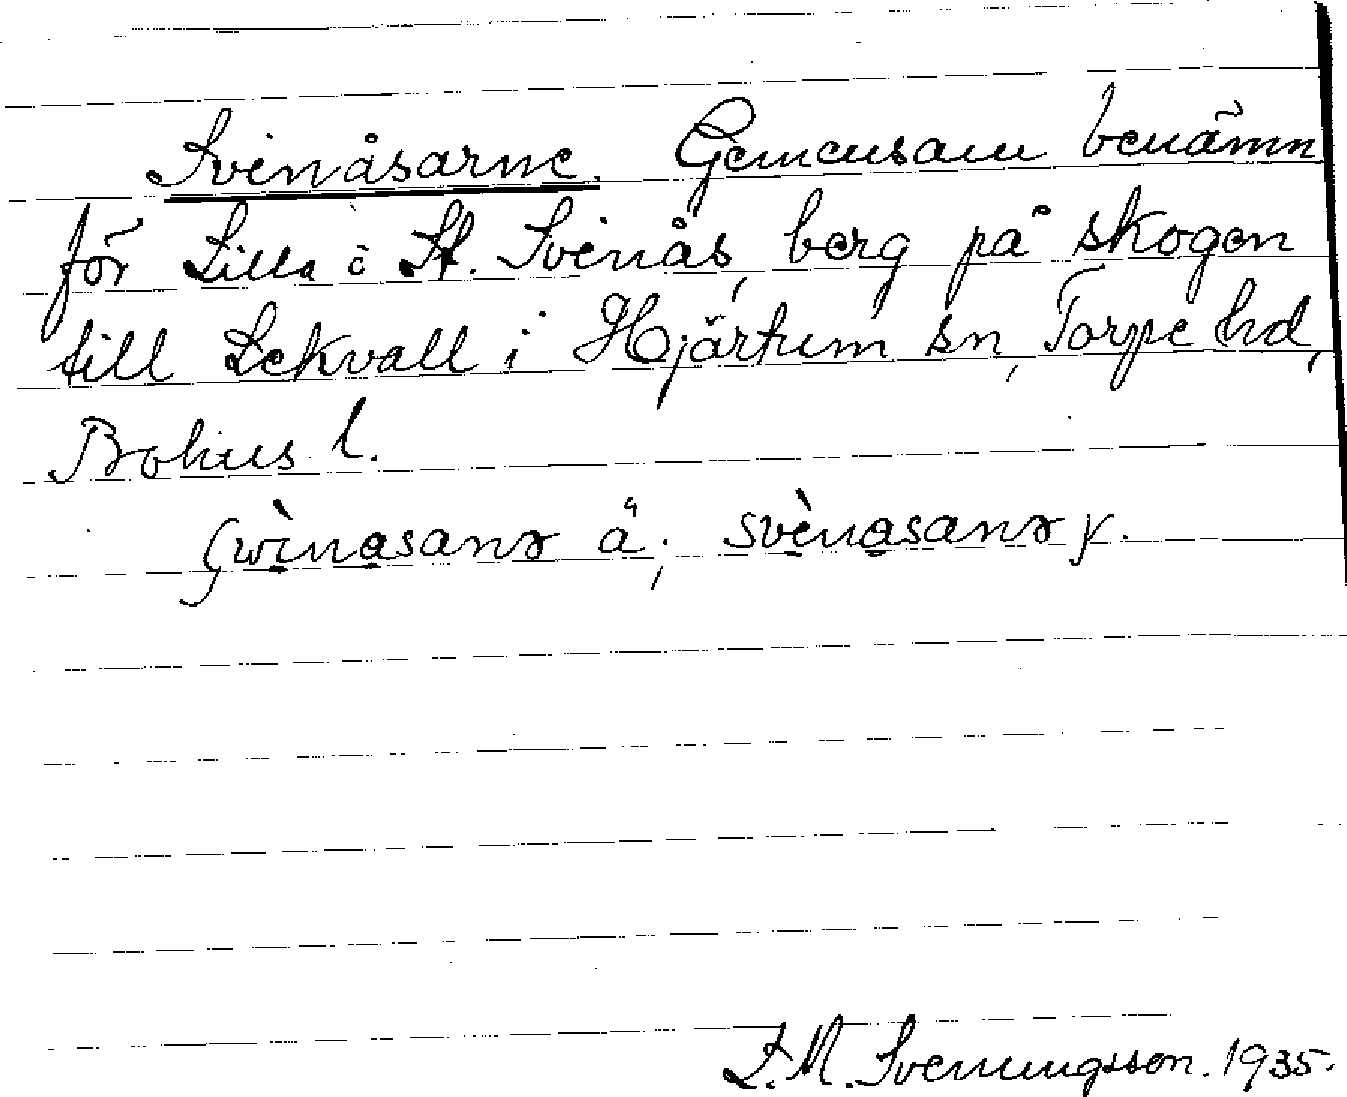 Svinåsarne. Gemensam benämn
för Lilla o St. Svinås, berg på skogen
till Lekvall i Hjärtum sn, Torpe hd,
Bohus l.
ä; y.
L. M. Svenungsson. 1935.